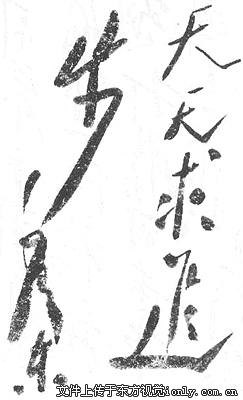 天天求進
步
文件上传于东方视觉ionly.com.cn